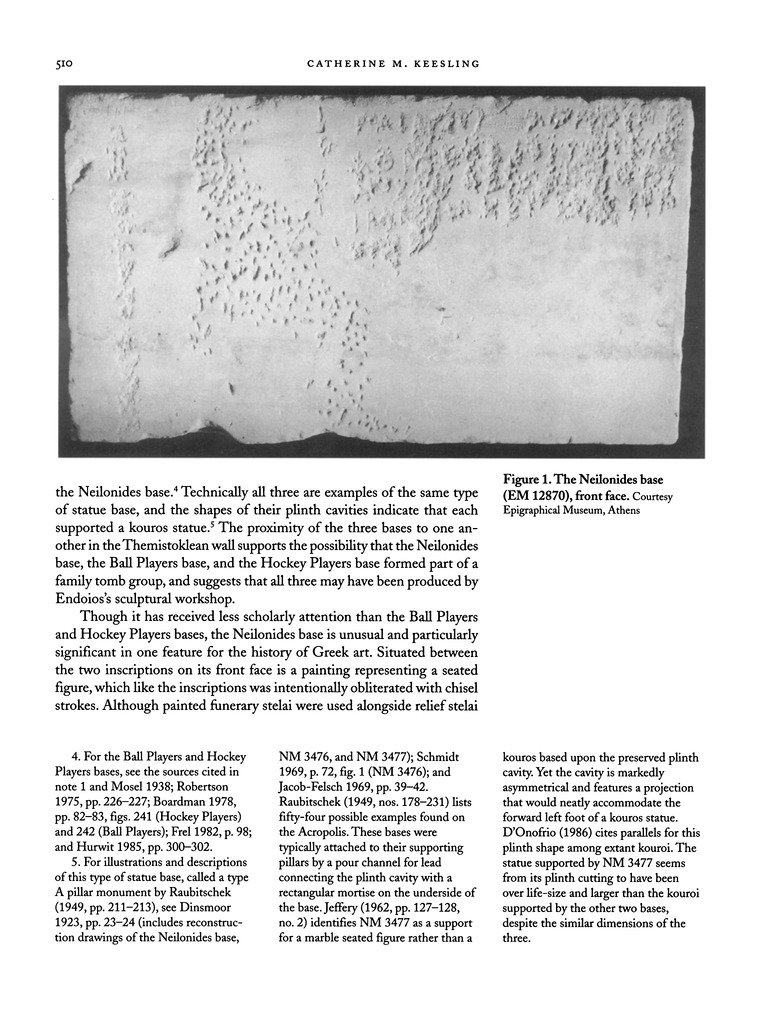 510
CATHERINE M. KEESLING
Figure 1. The Neilonides base
(EM 12870), front face. Courtesy
Epigraphical Museum, Athens
the Neilonides base.4 Technically all three are examples of the same type
of statue base, and the shapes of their plinth cavities indicate that each
supported a kouros statue.5 The proximity of the three bases to one an-
other in the Themistoklean wall supports the possibility that the Neilonides
base, the Ball Players base, and the Hockey Players base formed part of a
family tomb group, and suggests that all three may have been produced by
Endoios's sculptural workshop.
Though it has received less scholarly attention than the Ball Players
and Hockey Players bases, the Neilonides base is unusual and particularly
significant in one feature for the history of Greek art. Situated between
the two inscriptions on its front face is a painting representing a seated
figure, which like the inscriptions was intentionally obliterated with chisel
strokes. Although painted funerary stelai were used alongside relief stelai
4. For the Ball Players and Hockey
Players bases, see the sources cited in
note 1 and Mosel 1938; Robertson
1975, pp. 226–227; Boardman 1978,
pp. 82–83, figs. 241 (Hockey Players)
and 242 (Ball Players); Frel 1982, p. 98;
and Hurwit 1985, pp. 300–302.
5. For illustrations and descriptions
of this type of statue base, called a type
A pillar monument by Raubitschek
(1949, pp. 211–213), see Dinsmoor
1923, pp. 23–24 (includes reconstruc-
tion drawings of the Neilonides base,
NM 3476, and NM 3477); Schmidt
1969, p. 72, fig. 1 (NM 3476); and
Jacob-Felsch 1969, pp. 39–42.
Raubitschek (1949, nos. 178–231) lists
fifty-four possible examples found on
the Acropolis. These bases were
typically attached to their supporting
pillars by a pour channel for lead
connecting the plinth cavity with a
rectangular mortise on the underside of
the base. Jeffery (1962, pp. 127–128,
no. 2) identifies NM 3477 as a support
for a marble seated figure rather than a
kouros based upon the preserved plinth
cavity. Yet the cavity is markedly
asymmetrical and features a projection
that would neatly accommodate the
forward left foot of a kouros statue.
D'Onofrio (1986) cites parallels for this
plinth shape among extant kouroi. The
statue supported by NM 3477 seems
from its plinth cutting to have been
over life-size and larger than the kouroi
supported by the other two bases,
despite the similar dimensions of the
three.